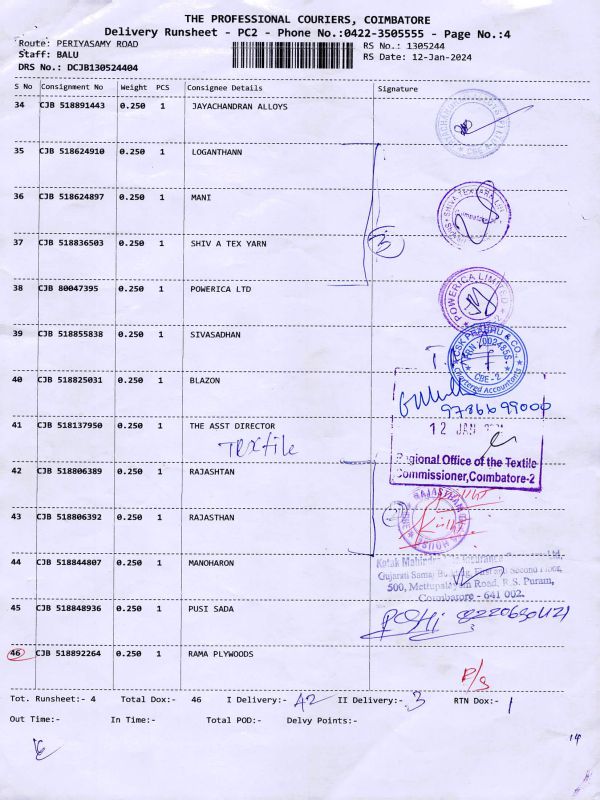 THE PROFESSIONAL COURIERS, COIMBATORE
Delivery Runsheet - PC2 - Phone No.:0422-3505555 - Page No.:4
Route: PERIYASAMY ROAD RS No.: 1305244
Staff: BALU RS Date: 12-Jan-2024
DRS No.: DCJB130524404
S No Consignment No Weight PCS Consignee Details Signature
34 CJB 518891443 0.250 1 JAYACHANDRAN ALLOYS
35 CJB 518624910 0.250 1 LOGANTHANN
36 CJB 518624897 0.250 1 MANI
37 CJB 518836503 0.250 1 SHIV A TEX YARN
3
38 CJB 80047395 0.250 1 POWERICA LTD
POWERICA LIMITED
39 CJB 518855838 0.250 1 SIVASADHAN
CSK PRABHU & CO.
CBE - 2
Chartered Accountants
40 CJB 518825031 0.250 1 BLAZON
9786699000
41 CJB 518137950 0.250 1 THE ASST DIRECTOR
Textile
12 JAN
Regional Office of the Textile
Commissioner,Coimbatore-2
42 CJB 518806389 0.250 1 RAJASHTAN
43 CJB 518806392 0.250 1 RAJASTHAN
RAJASTHAN
44 CJB 518844807 0.250 1 MANOHARON
Kotak Mahindra
Gujarati Samaj Second Floor,
500, Mettupalayam Road, R.S. Puram,
Coimbatore - 641 002.
45 CJB 518848936 0.250 1 PUSI SADA
46 CJB 518892264 0.250 1 RAMA PLYWOODS
P/s
Tot. Runsheet:- 4 Total Dox:- 46 I Delivery:- 42 II Delivery:- 3 RTN Dox:- 1
Out Time:- In Time:- Total POD:- Delvy Points:-
14